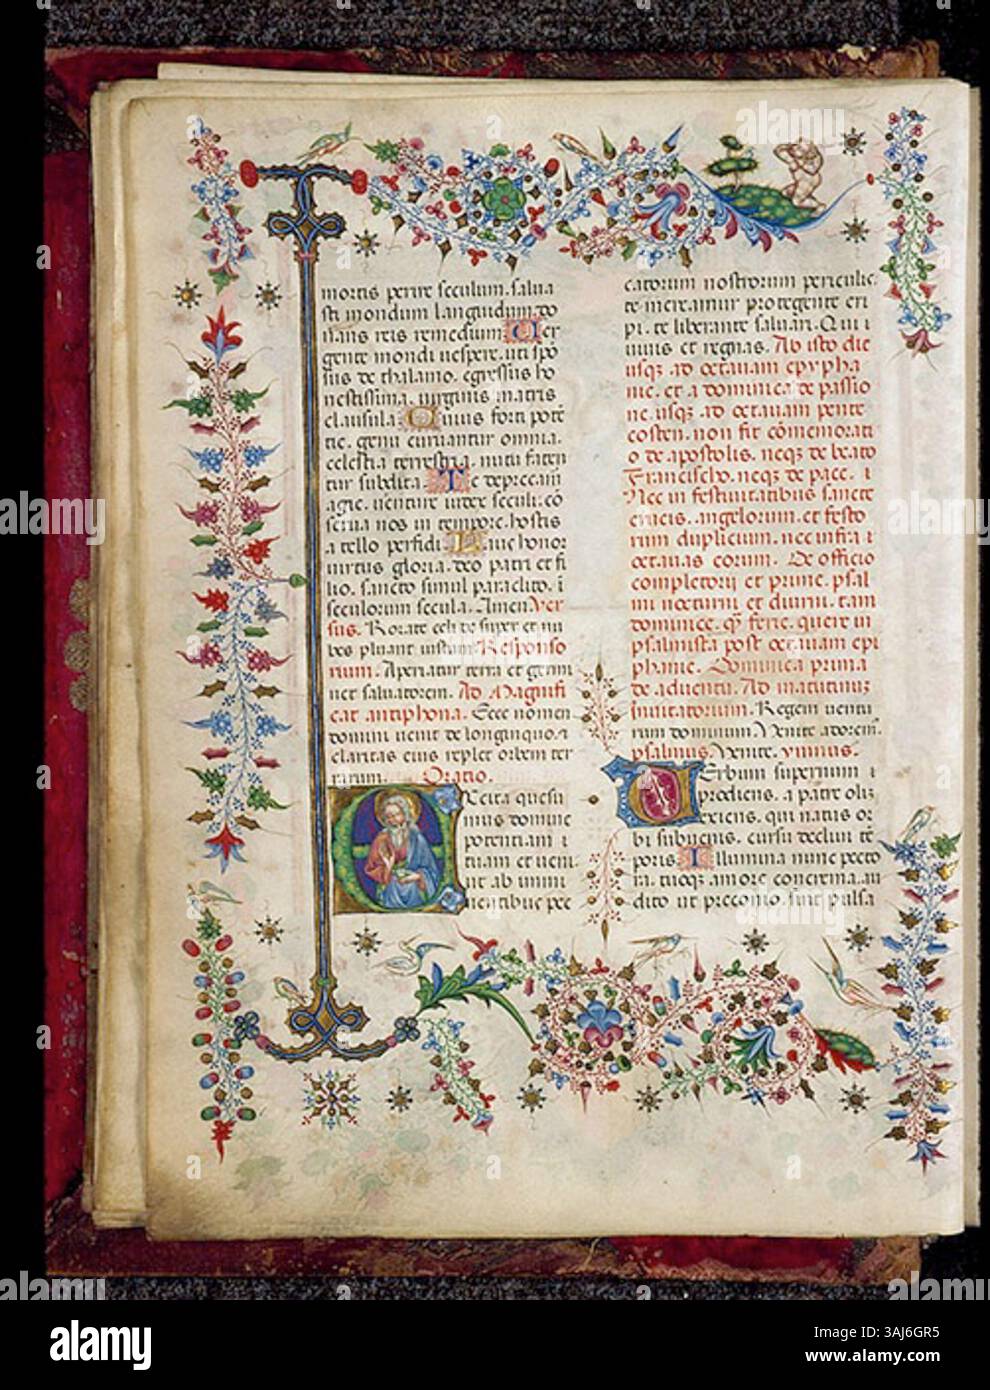 mortis perire seculum. salua
sti mondum languidum. do
nans reis remedium. Uer
gente mondi uespere. uti spo
sus de thalamo. egressus ho
nestissima. uirginis matris
clausula. Cuius forti potē
tie. genu curuantur omnia.
celestia terrestria. nutu faten
tur subdita. Te deprecam
agie. uenture iudex seculi. cō
serua nos in tempore. hostis
a telo perfidi. Laus honor
uirtus gloria. deo patri et fi
lio. sancto simul paraclito. i
seculorum secula. Amen Ver
sus. Rorate celi desuper et nu
bes pluant iustum Responso
rium. Aperiatur terra et germi
net saluatorem. Ad Magnifi
cat antiphona. Ecce nomen
domini uenit de longinquo. &
claritas eius replet orbem ter
rarum. Oratio.
Excita quesu
mus domine
potentiam t
tuam et ueni.
ut ab immi
nentibus pec
catorum nostrorum periculis
te mereamur protegente eri
pi. te liberante saluari. Qui i
uiuis et regnas. Ab isto die
usqȝ ad octauam epypha
nie. et a dominica de passio
ne. usqȝ ad octauam pente
costen. non fit cōmemorati
o de apostolis. neqȝ de beato
Francischo. neqȝ de pace. i
Nec in festiuitatibus sancte
crucis. angelorum. et festo
rum duplicium. nec infra i
octauas eorum. De officio
completorij et prime. psal
mi nocturni et diurni. tam
dominice. qȝ ferie. quere in
psalmista post octauam epi
phanie. Dominica prima
de aduentu. Ad matutinuȝ
inuitatorium. Regem uentu
rum dominum Uenite adorem.
psalmus. Uenite. ymnus.
Uerbum supernum i
prodiens. a patre oliȝ
exiens. qui natus or
bi subuenis. cursu decliui tē
poris Illumina nunc pecto
ra. tuoqȝ amore concrema. au
dito ut preconio. sint pulsa
alamy
Image ID: 3AJ6GR5
www.alamy.com